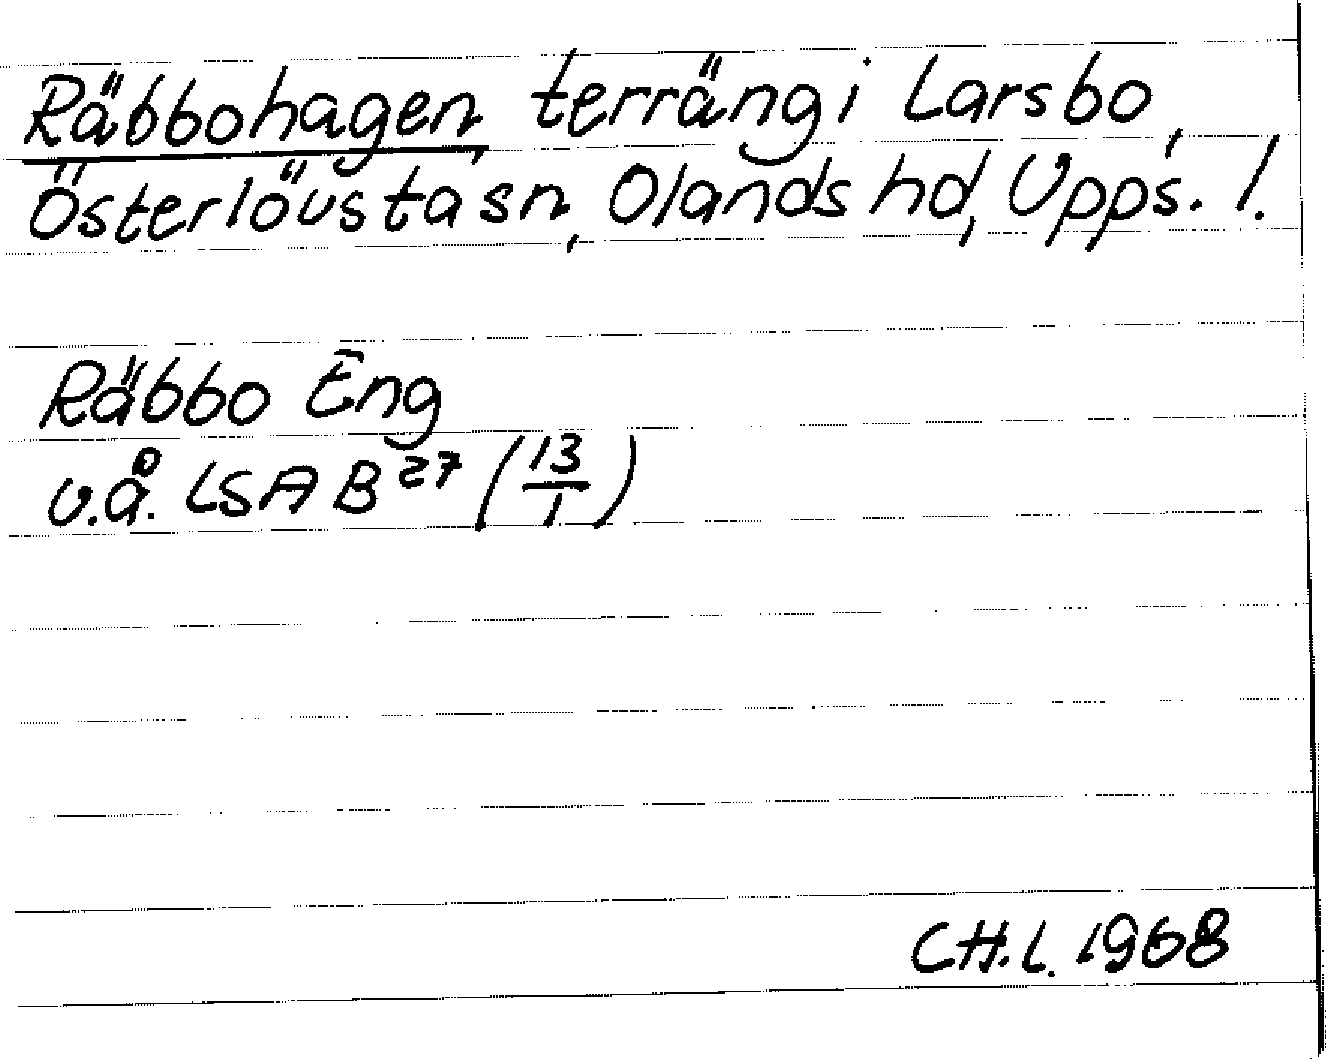 Räbbohagen, terräng i Larsbo,
Österlövsta sn, Olands hd, Upps. l.
Räbbo Eng
u.å. LSA B 27 (13/1)
CH.L. 1968